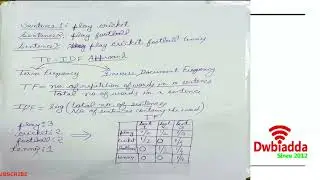 Sentence 1: play cricket
Sentence 2: play football
Sentence 3: play cricket football tennis
TF-IDF Approach
Term Frequency Inverse Document Frequency
TF = no of repition of words in a sentence
Total no of words in a sentence
IDF = log (total no of sentences
No of sentences containing the word)
play: 3
cricket: 2
football: 2
tennis: 1
TF
play 1/2 1/2 1/4
1/2 0 1/4
0 1/2 1/4
0 0 1/4
Dwbiadda
Since 2012
UBSCRIBE